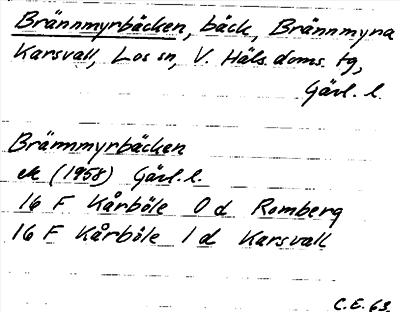 Brännmyrbäcken, bäck, Brännmyra
Karsvall, Los sn, V. Häls. doms. tg,
Gävl. l.
Brännmyrbäcken
ek (1958) Gävl. l.
16 F Kårböle 0 d Romberg
16 F Kårböle 1 d Karsvall
C.E. 63.